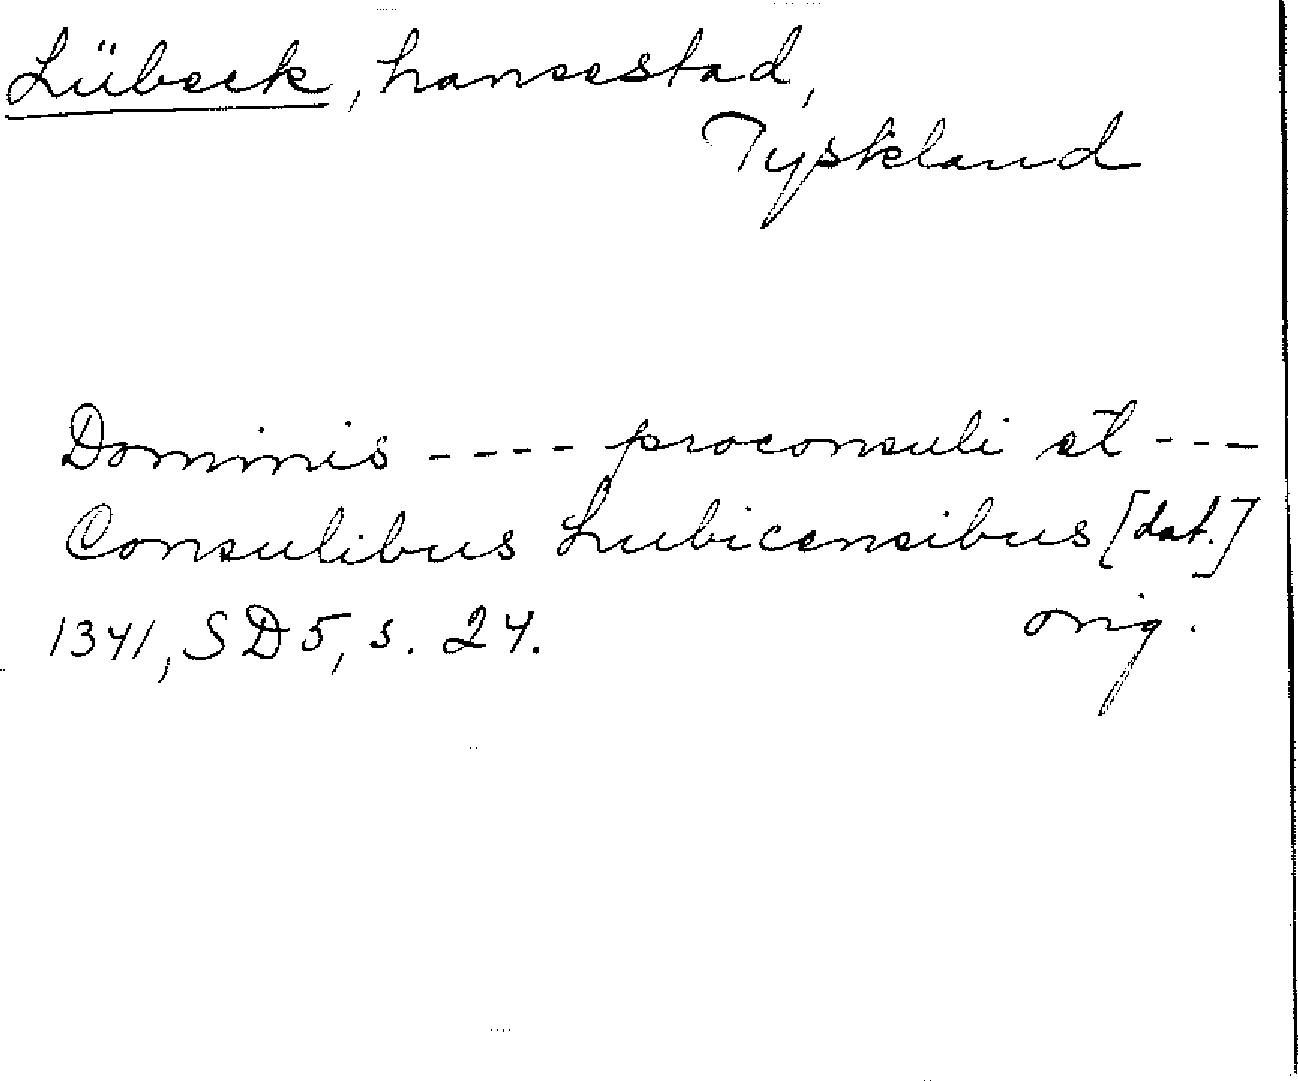 Lübeck, hansestad,
Tyskland
Dominis ---- proconsuli et ---
Consulibus Lubicensibus [dat.]
1341, SD5, s. 24. orig.